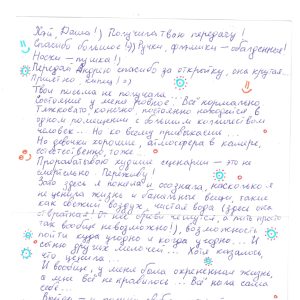 Хэй, Даша!) Получила твою передачу!
Спасибо большое! :) Ручки, флэшки – обалденные!
Носки – пушка!)
Передай Андрею спасибо за открытку, она крутая.
Приветик Кипец! =)
Твои письма не получала.
Состояние у меня ровное. Всё нормально.
Тяжковато конечно постоянно находится в
одном помещении с большим количеством
человек... Но ко всему привыкаешь.
Но девчонки хорошие, атмосфера в камере,
соответственно, тоже.
Прорабатываю худшие сценарии – это не
смертельно. Переживу!
Зато здесь я поняла и осознала, насколько я
не ценила жизнь и банальные вещи, такие
как свежий воздух, чистая вода (здесь она
отвратная! От неё брови чешутся, а пить просто
так вообще невозможно!), возможность
пойти куда угодно и когда угодно... И
сотню других мелочей... Хотя казалось,
что ценила...
И вообще, у меня была охрененная жизнь,
а мне всё не нравилось... Всё ныла сама
себе.